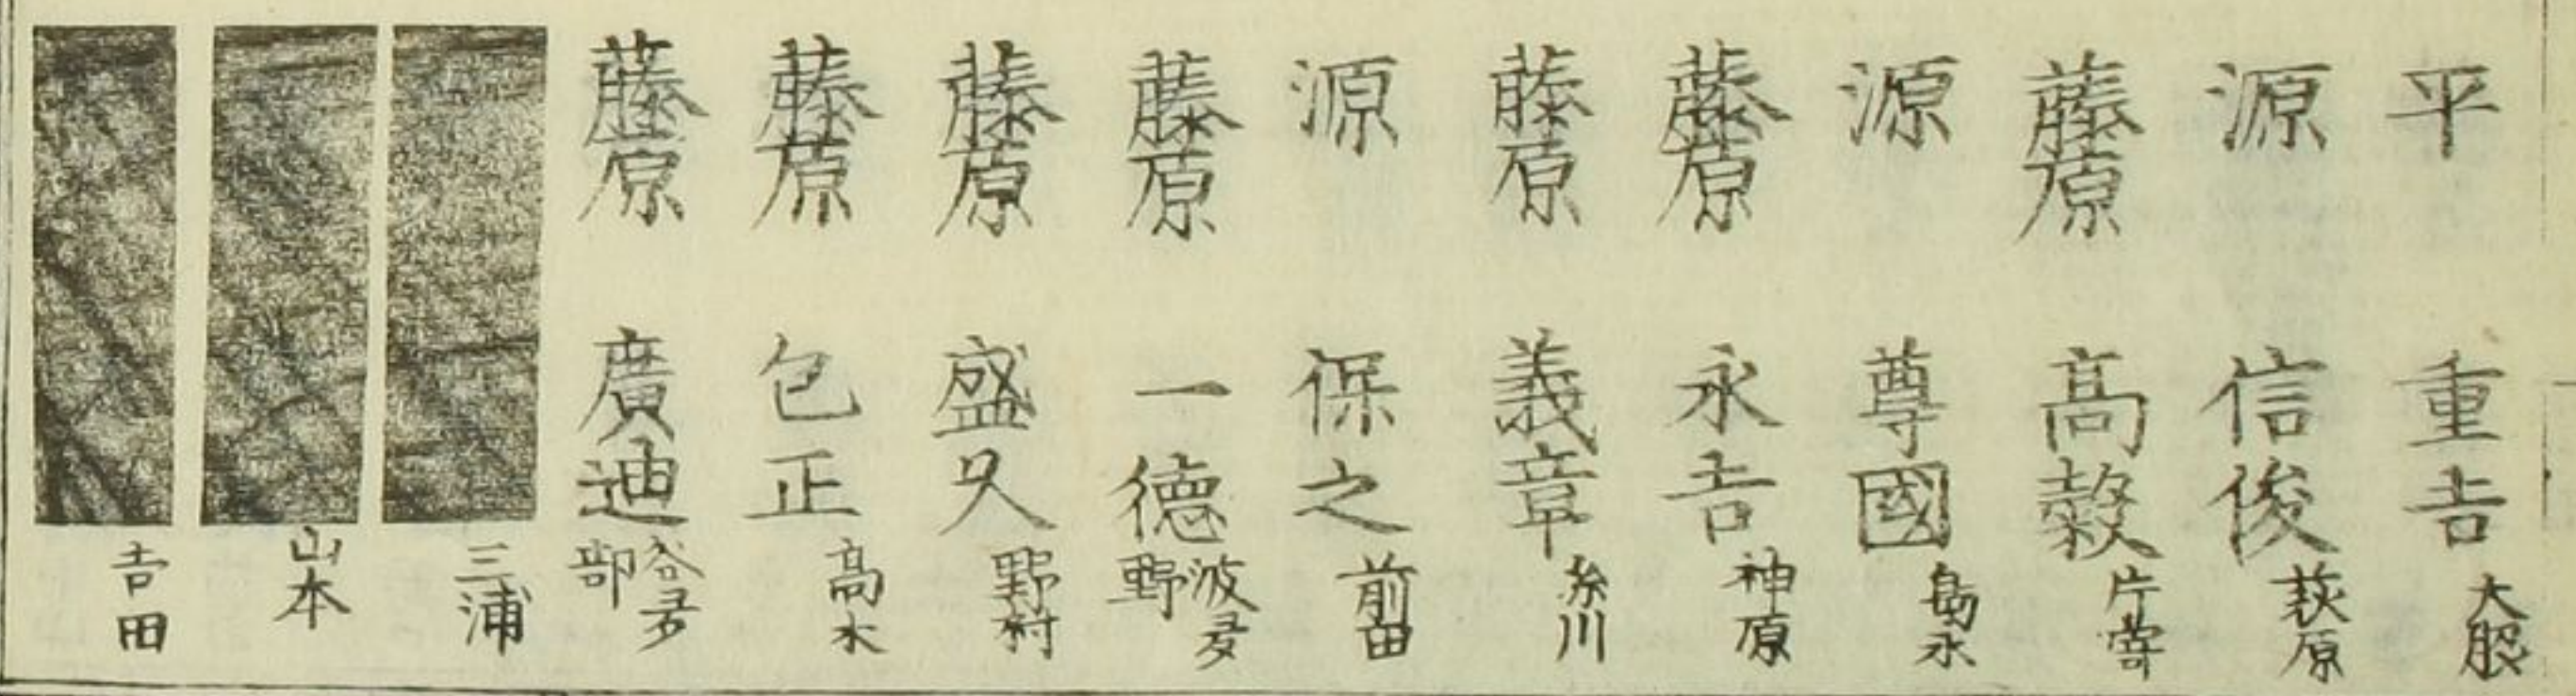 平 重吉 大服
源 信俊 荻原
藤原 高毅 片寄
源 尊國 島永
藤原 永吉 神原
藤原 義章 糸川
源 保之 前田
藤原 一德 波多野
藤原 盛久 野村
藤原 包正 高木
藤原 廣迪
三浦
山本
吉田